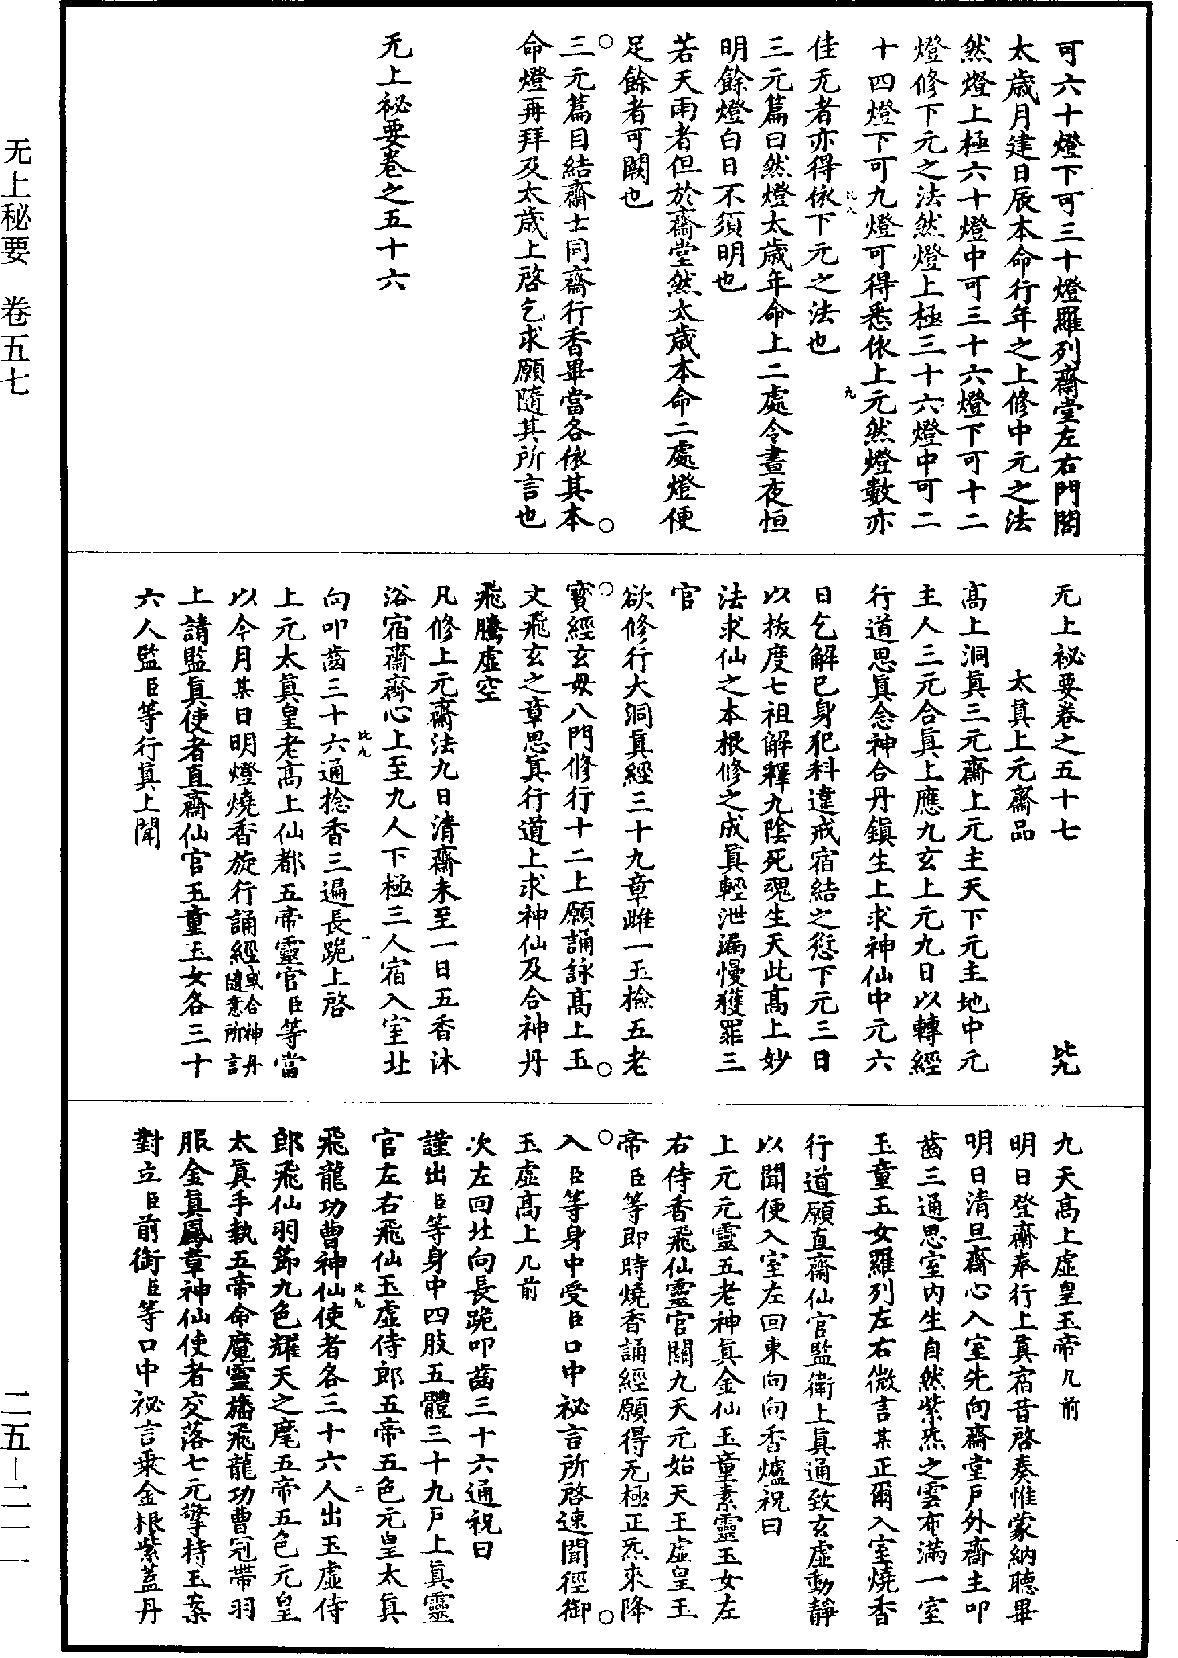 可六十燈下可三十燈羅列齋堂左右門閤
太歲月建日辰本命行年之上修中元之法
然燈上極六十燈中可三十六燈下可十二
燈修下元之法然燈上極三十六燈中可二
十四燈下可九燈可得悉依上元然燈數亦
佳无者亦得依下元之法也
三元篇曰然燈太歲年命上二處令晝夜恒
明餘燈白日不須明也
若天雨者但於齋堂然太歲本命二處燈便
足餘者可闕也
三元篇目結齋士同齋行香畢當各依其本
命燈再拜及太歲上啓乞求願隨其所言也
无上祕要卷之五十六
无上祕要卷之五十七 比九
太眞上元齋品
高上洞眞三元齋上元主天下元主地中元
主人三元合眞上應九玄上元九日以轉經
行道思眞念神合丹鎭生上求神仙中元六
日乞解已身犯科違戒宿結之愆下元三日
以拔度七祖解釋九陰死魂生天此高上妙
法求仙之本根修之成眞輕泄漏慢獲罪三
官
欲修行大洞眞經三十九章雌一玉檢五老
寶經玄母八門修行十二上願誦詠高上玉
文飛玄之章思眞行道上求神仙及合神丹
飛騰虛空
凡修上元齋法九日清齋未至一日五香沐
浴宿齋齋心上至九人下極三人宿入室北
向叩齒三十六通捻香三遍長跪上啓
上元太眞皇老高上仙都五帝靈官臣等當
以今月某日明燈燒香旋行誦經或合神丹隨意所言
上請監眞使者直齋仙官玉童玉女各三十
六人監臣等行眞上聞
九天高上虛皇玉帝几前
明日登齋奉行上眞宿昔啓奏惟蒙納聽畢
明日清旦齋心入室先向齋堂戶外齋主叩
齒三通思室內生自然紫炁之雲布滿一室
玉童玉女羅列左右微言某正爾入室燒香
行道願直齋仙官監衛上眞通致玄虛動靜
以聞便入室左回東向向香爐祝曰
上元元靈五老神眞金仙玉童素靈玉女左
右侍香飛仙靈官關九天元始天王虛皇玉
帝臣等即時燒香誦經願得无極正炁來降
入臣等身中受臣口中祕言所啓速聞徑御
玉虛高上几前
次左回北向長跪叩齒三十六通祝曰
謹出臣等身中四肢五體三十九戶上眞靈
官左右飛仙玉虛侍郎五帝五色元皇太眞
飛龍功曹神仙使者各三十六人出玉虛侍
郎飛仙羽節九色耀天之麾五帝五色元皇
太眞手執五帝命魔靈旛飛龍功曹冠帶羽
服金眞鳳章神仙使者交落七元擎持玉案
對立臣前衛臣等口中祕言乘金根紫蓋丹
比八
九
比九
一
比九
二
无上秘要　卷五七
二五—二一一